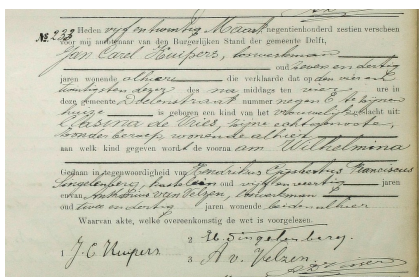 № 233 Heden vijf en twintig Maart negentienhonderd zestien verscheen
voor mij ambtenaar van den Burgerlijken Stand der gemeente Delft,
Jan Carel Kuijpers, loswerkman
oud zeven en dertig
jaren wonende alhier die verklaarde dat op den vier en
twintigsten dezer des na middags ten vier ure in
deze gemeente Doelenstraat nummer negen E te zijnen
huize is geboren een kind van het vrouwelijk geslacht uit:
Clasina de Vries, zijne echtgenoote,
zonder beroep wonende alhier
aan welk kind gegeven wordt de voornaam Wilhelmina
Gedaan in tegenwoordigheid van Hendrikus Franciscus
Singelenberg, oud vijf en veertig jaren
en van Antonius van Velzen, loswerkman
oud twee en dertig jaren wonende beiden alhier
Waarvan akte, welke overeenkomstig de wet is voorgelezen.
1 J. C. Kuipers 2 Singelenberg.
3 A. v. Velzen.